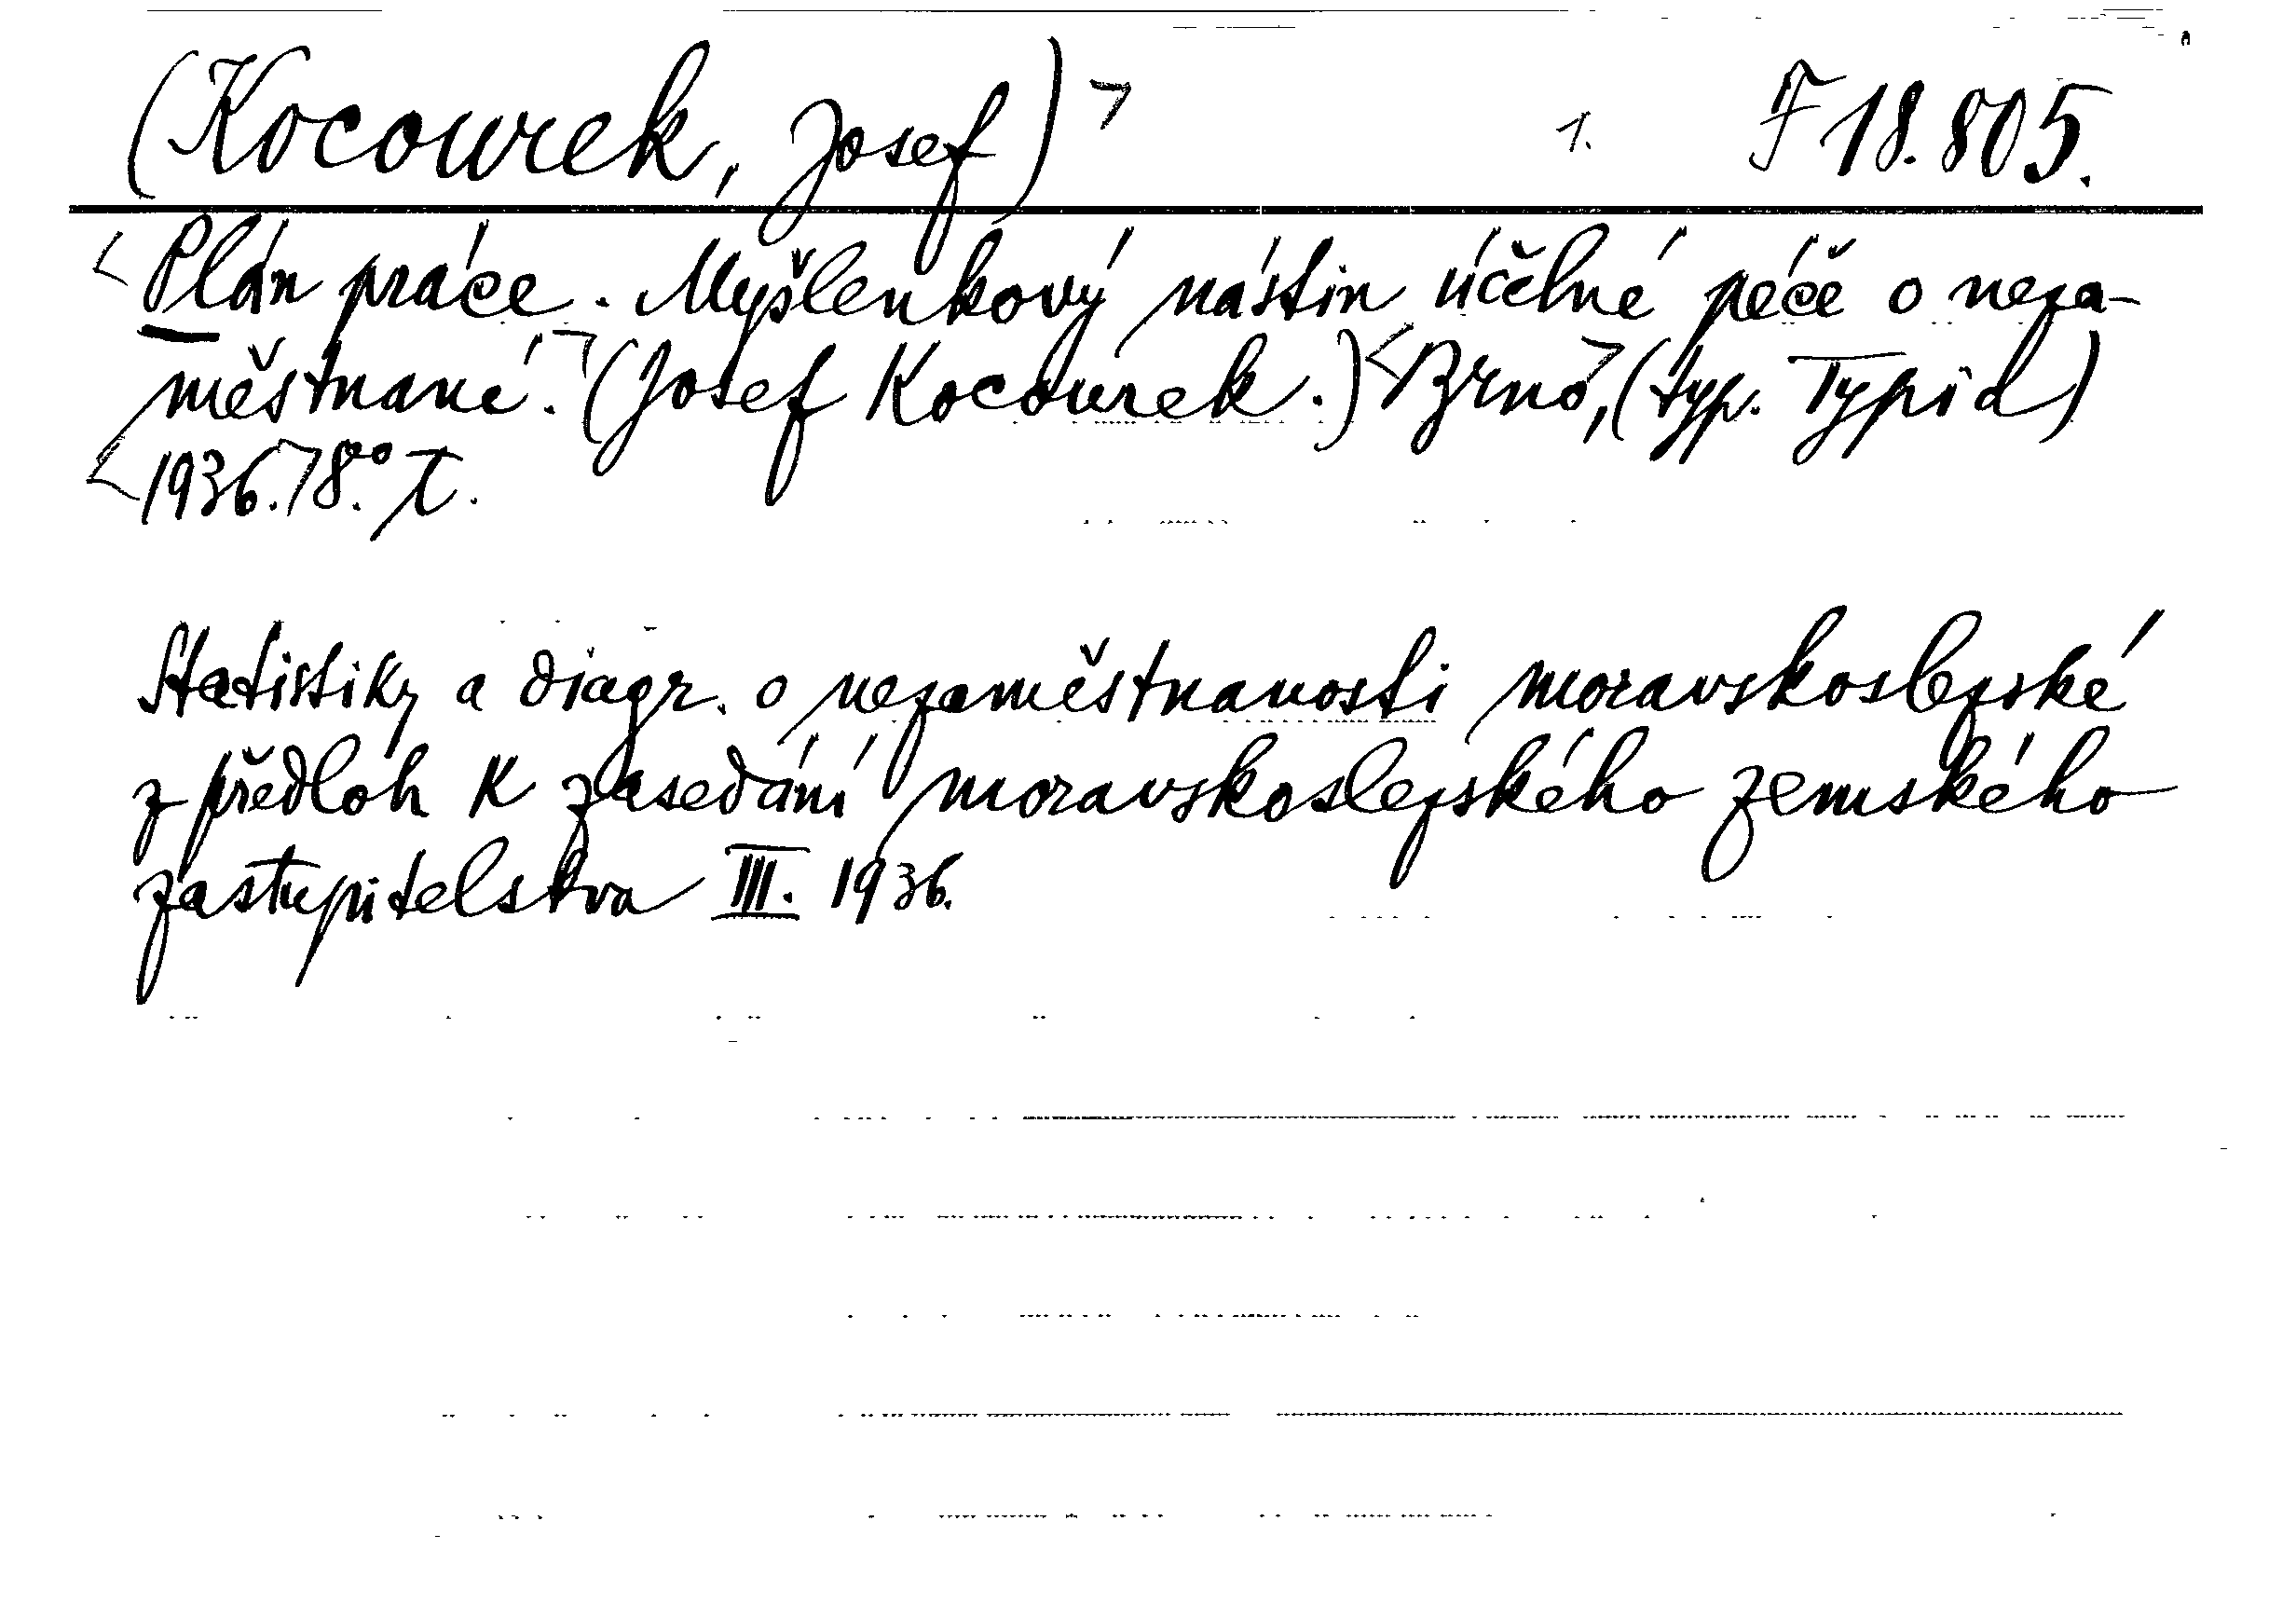 (Kocourek, Josef) 1. F 18.805.
Plán práce. Myšlenkový nástin účelné péče o neza-
městnané. (Josef Kocourek.) Brno, (typ. Typid)
1936. 8°. T.
Statistiky a diagr. o nezaměstnanosti moravskoslezské
z předloh k zasedání moravskoslezského zemského
zastupitelstva III. 1936.